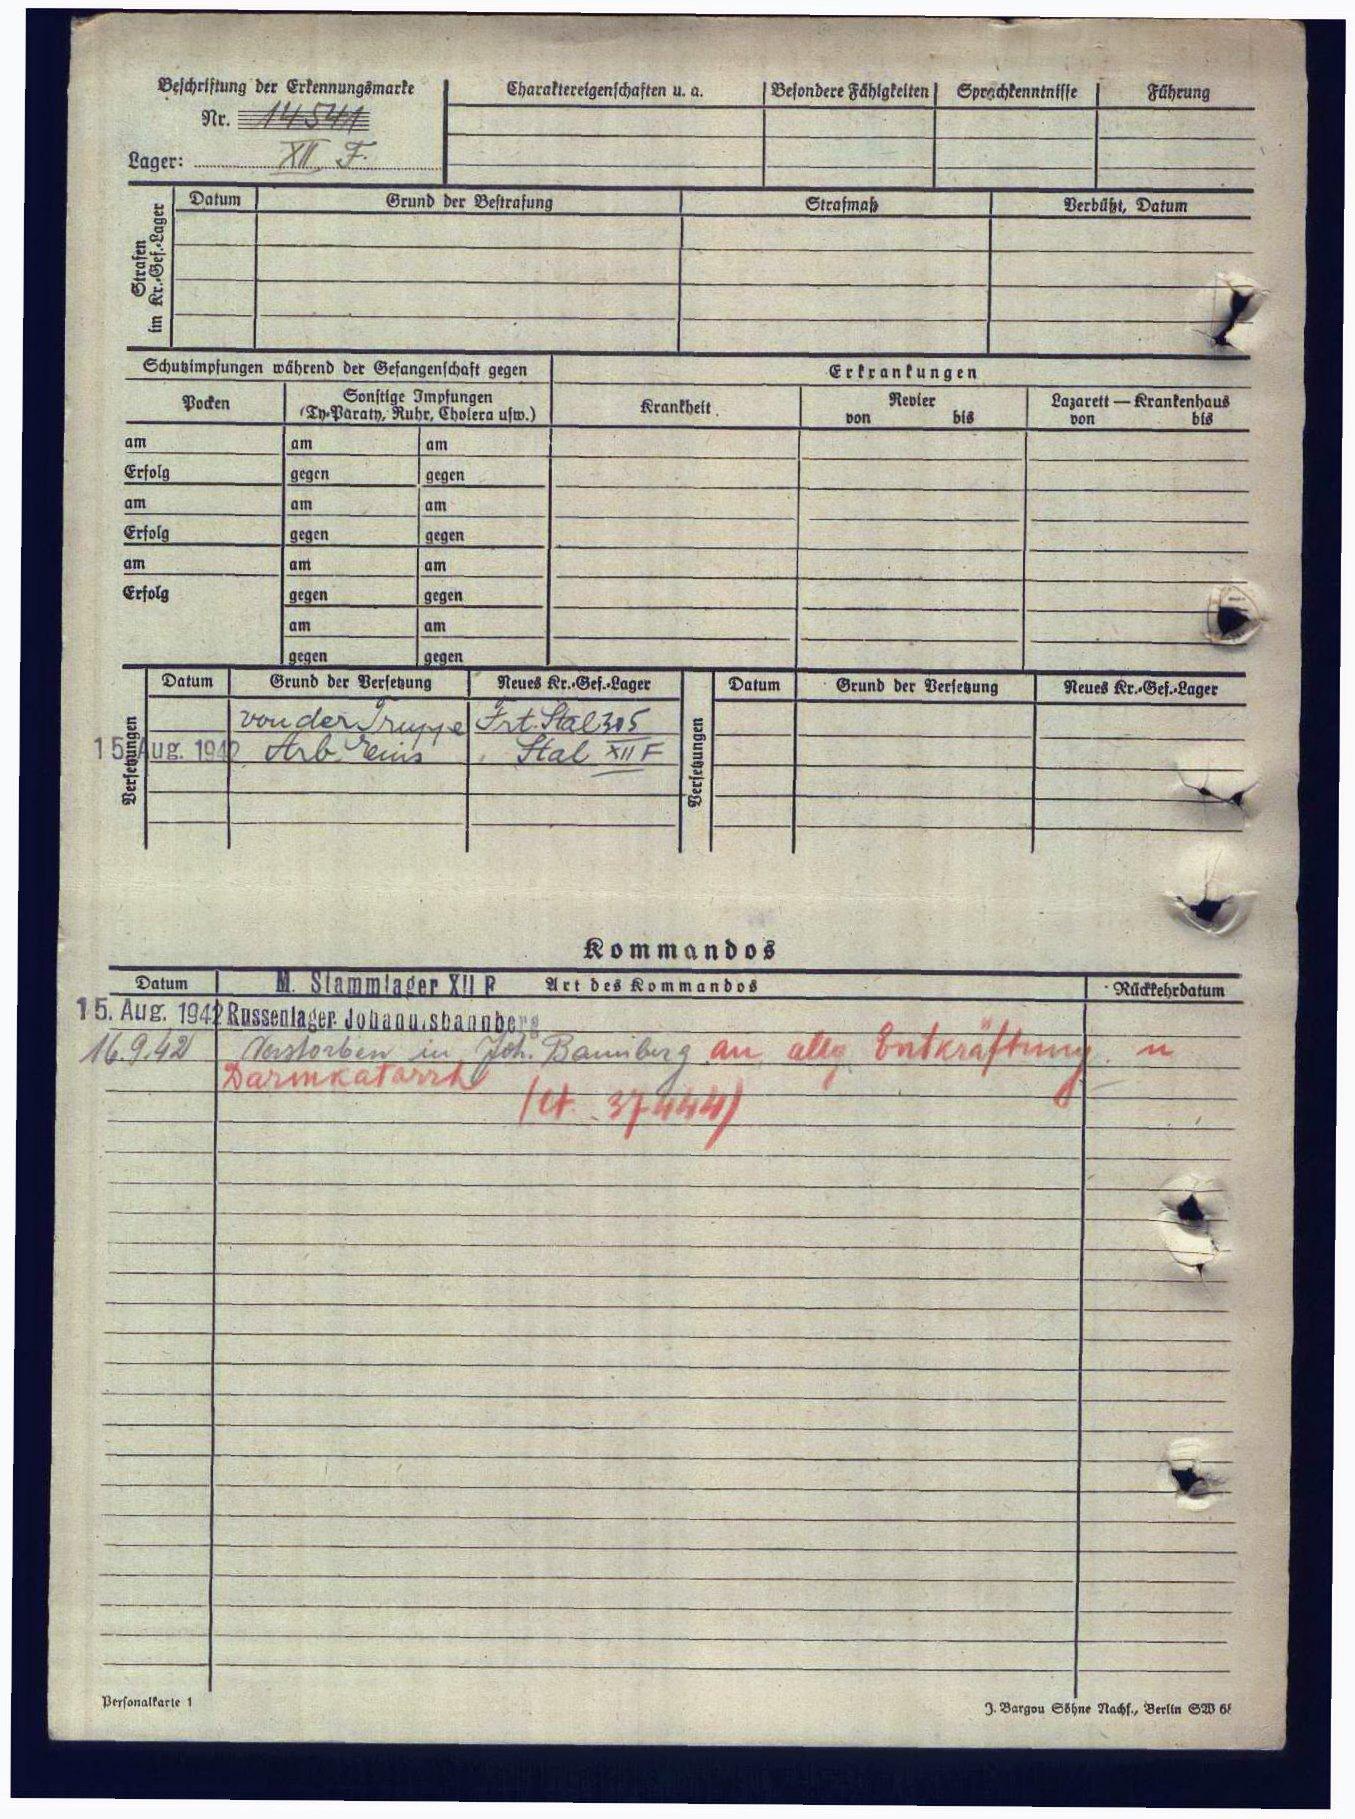 Beschriftung der Erkennungsmarke
Nr. 14541
Lager: XII F.
Charaktereigenschaften u. a. Besondere Fähigkeiten Sprachkenntnisse Führung
Strafen im Kr.-Gef.-Lager
Datum Grund der Bestrafung Strafmaß Verbüßt, Datum
Schutzimpfungen während der Gefangenschaft gegen Erkrankungen
Pocken Sonstige Impfungen (Ty-Paraty, Ruhr, Cholera usw.) Krankheit Revier von bis Lazarett — Krankenhaus von bis
am am am
Erfolg gegen gegen
am am am
Erfolg gegen gegen
am am am
Erfolg gegen gegen
am am
gegen gegen
Versetzungen Datum Grund der Versetzung Neues Kr.-Gef.-Lager Versetzungen Datum Grund der Versetzung Neues Kr.-Gef.-Lager
von der Truppe Frt. Stal 305
15. Aug. 1942 Arb. Eins Stal XII F
Kommandos
Datum M. Stammlager XII F Art des Kommandos Rückkehrdatum
15. Aug. 1942 Russenlager Johannisbannberg
16.9.42 Verstorben in Joh. Bannberg an allg. Entkräftung u
Darmkatarrh
37444)
Personalkarte 1 J. Bargou Söhne Nachf., Berlin SW 68